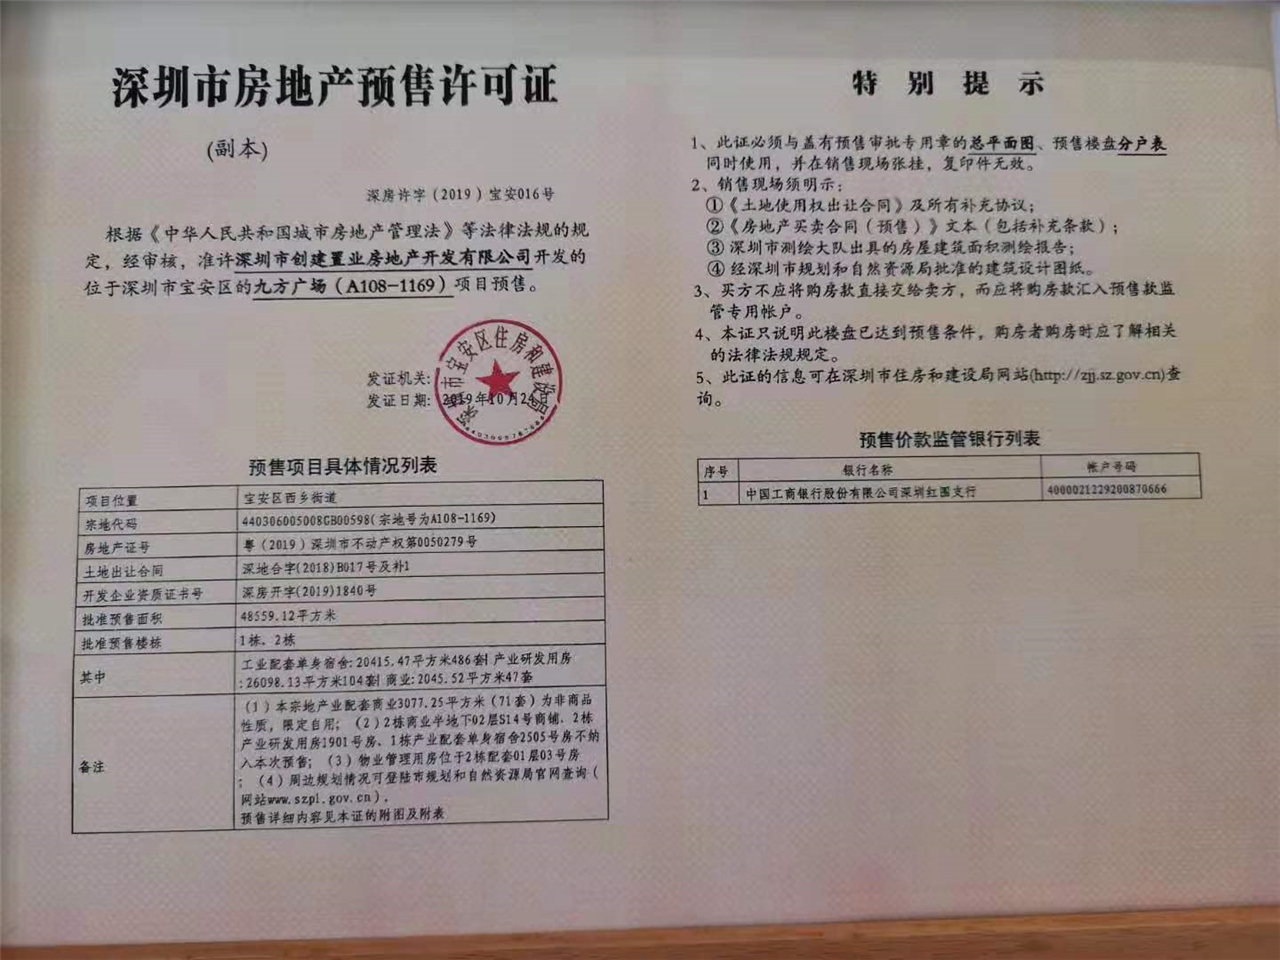 深圳市房地产预售许可证
(副本)
深房许字（2019）宝安016号
根据《中华人民共和国城市房地产管理法》等法律法规的规
定，经审核，准许深圳市创建置业房地产开发有限公司开发的
位于深圳市宝安区的九方广场（A108-1169）项目预售。
深圳市宝安区住房和建设局
发证机关:
发证日期: 2019年10月24日
预售项目具体情况列表
项目位置 宝安区西乡街道
宗地代码 440306005008GB00598(宗地号为A108-1169)
房地产证号 粤（2019）深圳市不动产权第0050279号
土地出让合同 深地合字(2018)B017号及补1
开发企业资质证书号 深房开字(2019)1840号
批准预售面积 48559.12平方米
批准预售楼栋 1栋、2栋
其中 工业配套单身宿舍:20415.47平方米486套| 产业研发用房
:26098.13平方米104套| 商业:2045.52平方米47套
备注 (1)本宗地产业配套商业3077.25平方米（71套）为非商品
性质，限定自用；（2)2栋商业半地下02层S14号商铺、2栋
产业研发用房1901号房、1栋产业配套单身宿舍2505号房不纳
入本次预售；（3）物业管理用房位于2栋配套01层03号房
；（4）周边规划情况可登陆市规划和自然资源局官网查询（
网站www.szpl.gov.cn）。
预售详细内容见本证的附图及附表
特别提示
1、此证必须与盖有预售审批专用章的总平面图、预售楼盘分户表
同时使用，并在销售现场张挂，复印件无效。
2、销售现场须明示：
①《土地使用权出让合同》及所有补充协议；
②《房地产买卖合同（预售）》文本（包括补充条款）；
③深圳市测绘大队出具的房屋建筑面积测绘报告；
④经深圳市规划和自然资源局批准的建筑设计图纸。
3、买方不应将购房款直接交给卖方，而应将购房款汇入预售款监
管专用帐户。
4、本证只说明此楼盘已达到预售条件，购房者购房时应了解相关
的法律法规规定。
5、此证的信息可在深圳市住房和建设局网站(http://zjj.sz.gov.cn)查
询。
预售价款监管银行列表
序号 银行名称 帐户号码
1 中国工商银行股份有限公司深圳红围支行 4000021229200870666